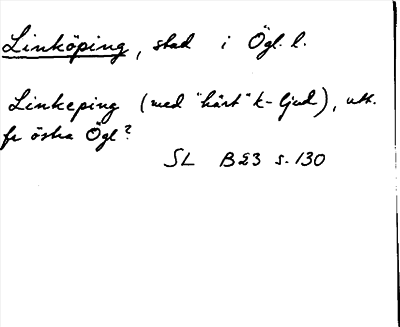 Linköping, stad i Ögl. l.
Linkeping (med "hårt" k-ljud), utt.
fr östra Ögl?
SL B23 s. 130